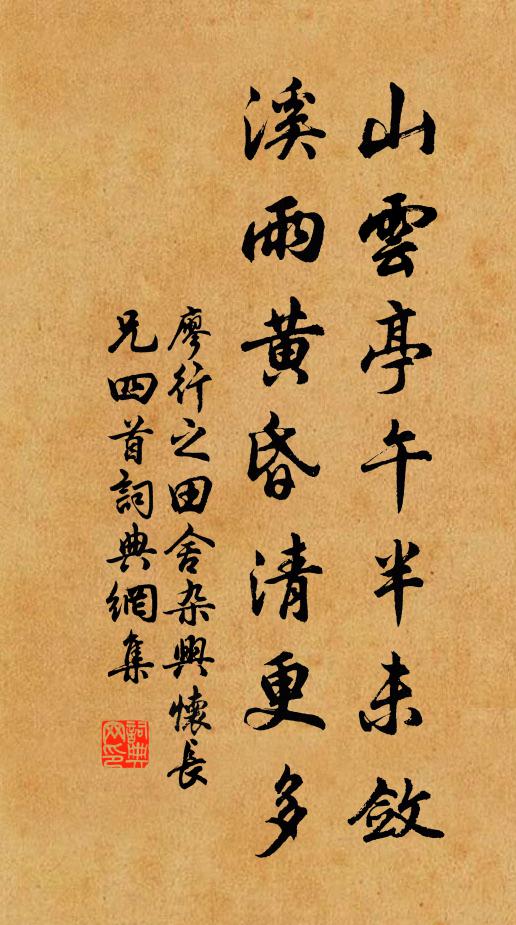 山雲亭午半未斂
溪雨黃昏清更多
廖行之田舍杂興懷長
兄四首詞典網集
詞典
网印